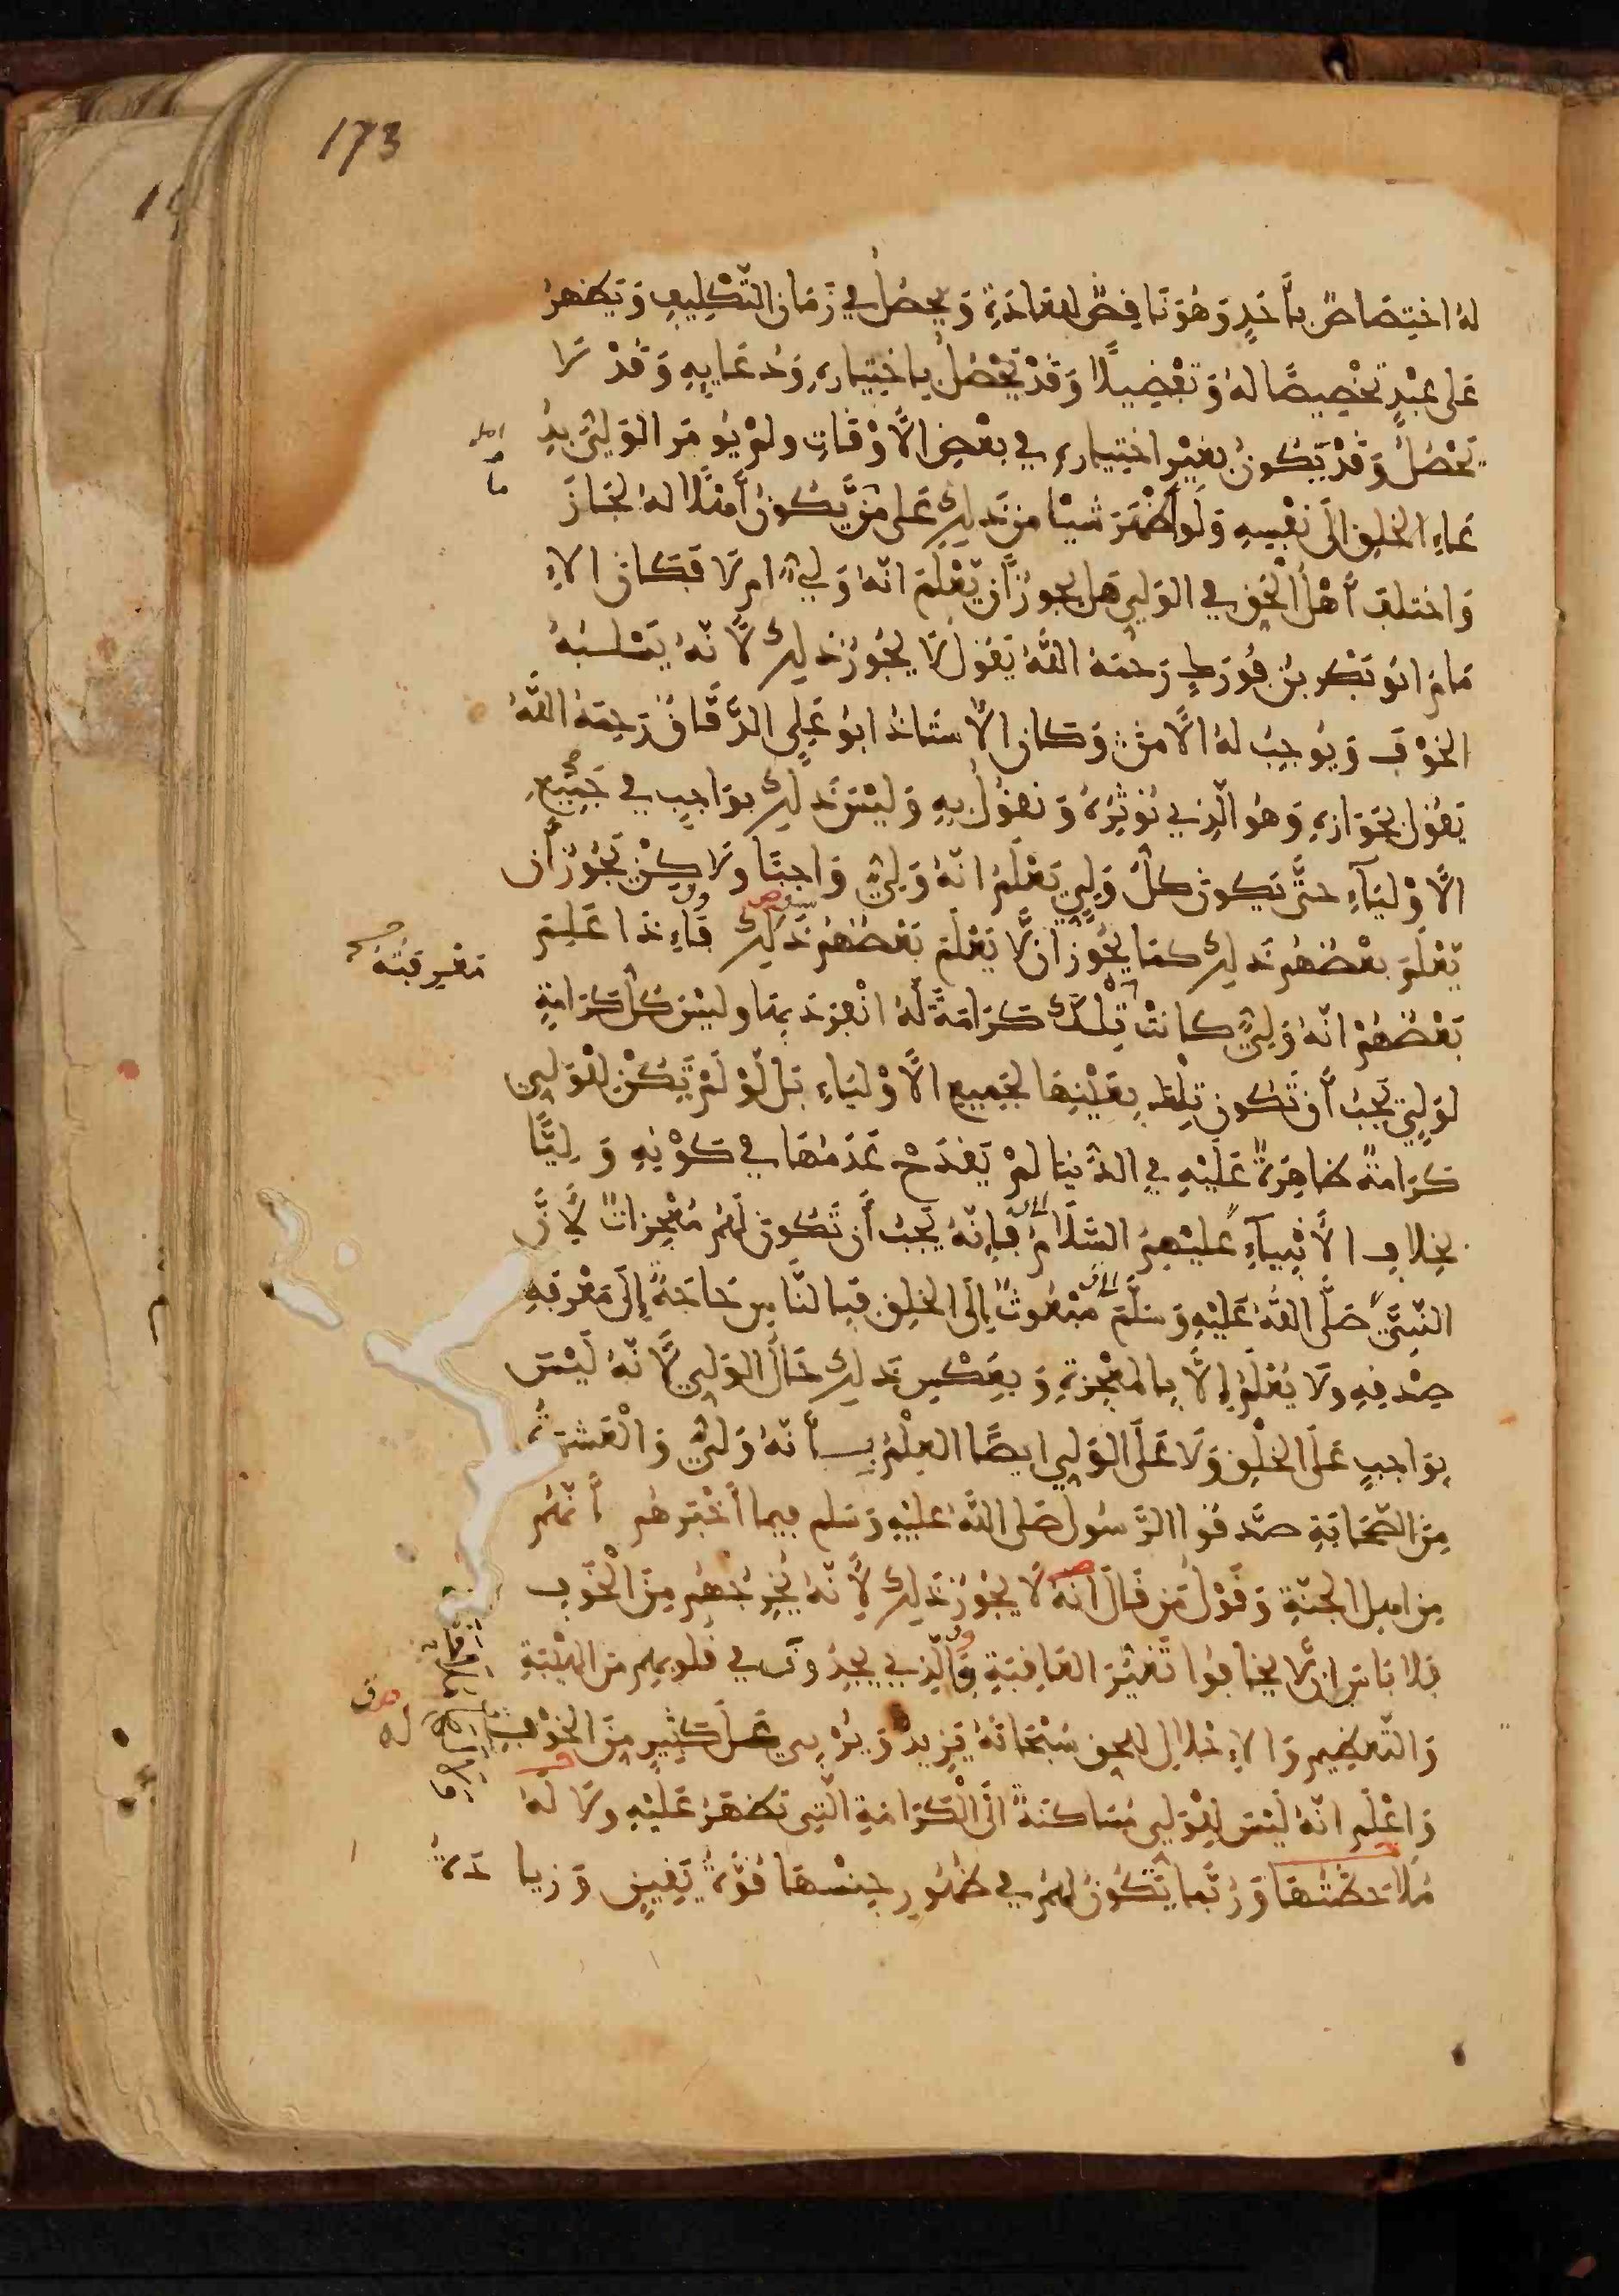 173
له اختصاص بأحد وهو ناقض للعادة ويحصل في زمان التكليف ويظهر
على عبد تخصيصا له وتفضيلا وقد تحصل باختياره ودعايه وقد لا
تحصل وقد يكون بغير اختياره في بعض الأوقات ولم يومر الولي بد
عاء الخلق الى نفسه ولو أظهر شيا من ذلك على من يكون أهلا له لجاز
واختلف أهل الحق في الولي هل يجوز أن يعلم انه ولي ام لا فكان الا
مام ابو بكر بن فورك رحمه الله يقول لا يجوز ذلك لأنه يسلبه
الخوف ويوجب له الأمن وكان الأستاذ ابو علي الدقاق رحمه الله
يقول بجوازه وهو الذي نوثره ونقول به وليس ذلك بواجب في جميع
الأولياء حتى يكون كل ولي يعلم انه ولي واجبا ولاكن يجوز أن
يعلم بعضهم ذلك كما يجوز ان لا يعلم بعضهم ذلك فإذا علم
معرفته
بعضهم انه ولي كانت تلك كرامة له انفرد بها وليس كل كرامة
لولي يجب أن تكون تلك بعينها لجميع الأولياء بل لو لم يكن للولي
كرامة ظاهرة عليه في الدنيا لم يقدح عدمها في كونه وليا
بخلاف الأنبياء عليهم السلام فإنه يجب أن تكون لهم معجزات لأن
النبي صلى الله عليه وسلم مبعوث إلى الخلق فبالناس حاجة إلى معرفة
صدقه ولا يعلم إلا بالمعجزة وبعكس ذلك حال الولي لأنه ليس
بواجب على الخلق ولا على الولي ايضا العلم بأنه ولي والعشرة
من الصحابة صدقوا الرسول صلى الله عليه وسلم فيما أخبرهم أنهم
من اهل الجنة وقول من قال انه لا يجوز ذلك لأنه يخرجهم من الخوف
فلا باس ان لا يخافوا تغير العاقبة والذي يجدونه في قلوبهم من الهيبة
والتعظيم والإجلال للحق سبحانه يزيد ويربي على كثير من الخوف
واعلم انه ليس للولي مساكنة الى الكرامة التي تظهر عليه ولا له
ملاحظتها وربما يكون لهم في ظهور جنسها قوة يقين وزيادة